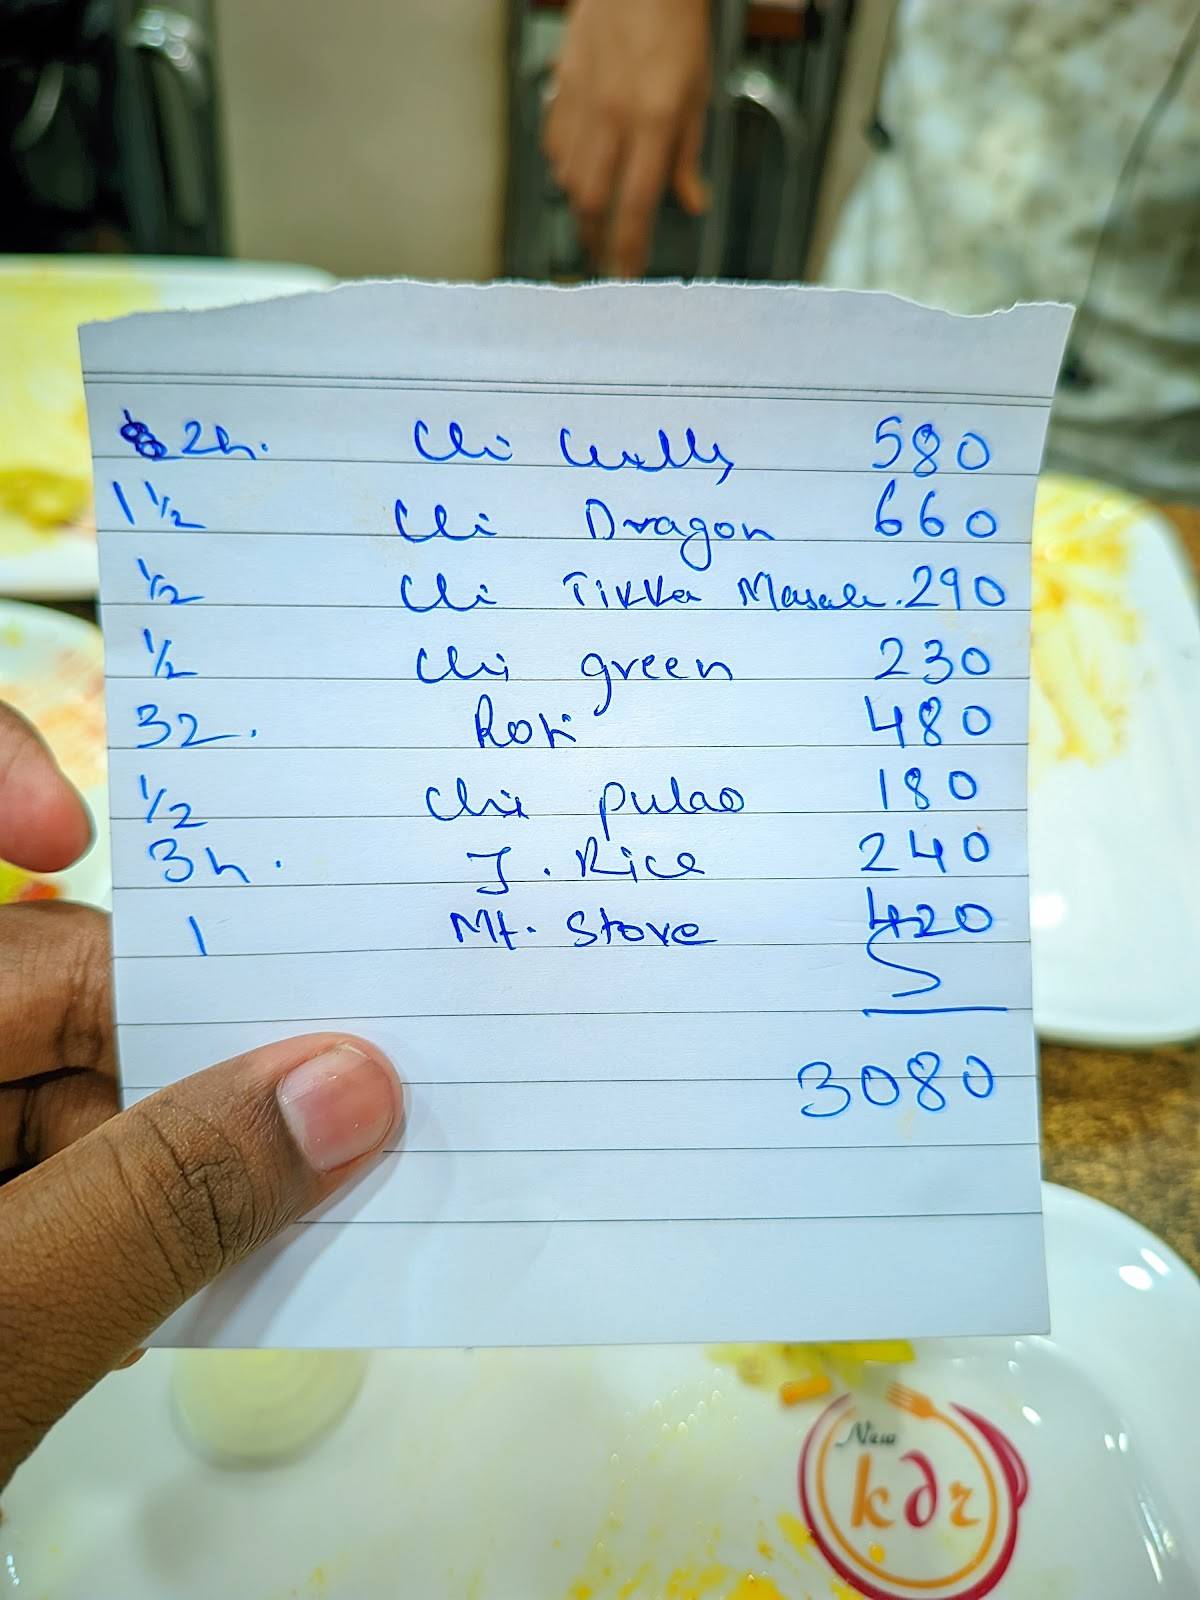 2h. Chi Crilly 580
1 1/2 Chi Dragon 660
1/2 Chi Tikka Masala. 290
1/2 Chi green 230
32. Roti 480
1/2 Chi pulao 180
3h. J. Rice 240
1 Mt. Stove 420
3080
New
kdr